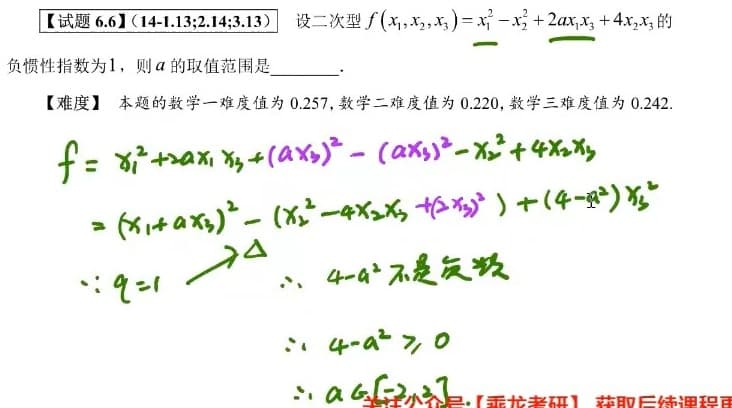 【试题 6.6】(14-1.13;2.14;3.13) 设二次型 f(x₁,x₂,x₃)=x₁²−x₂²+2ax₁x₃+4x₂x₃的
负惯性指数为1，则a的取值范围是________.
【难度】 本题的数学一难度值为 0.257, 数学二难度值为 0.220, 数学三难度值为 0.242.
f = x₁²+2ax₁x₃+(ax₃)²−(ax₃)²−x₂²+4x₂x₃
= (x₁+ax₃)²−(x₂²−4x₂x₃+(2x₃)²)+(4−a²)x₃²
∵ q=1 → △ ∴ 4−a² 不是负数
∴ 4−a² ⩾ 0
∴ a∈[−2,2]
关注公众号:【乘龙考研】 获取后续课程更